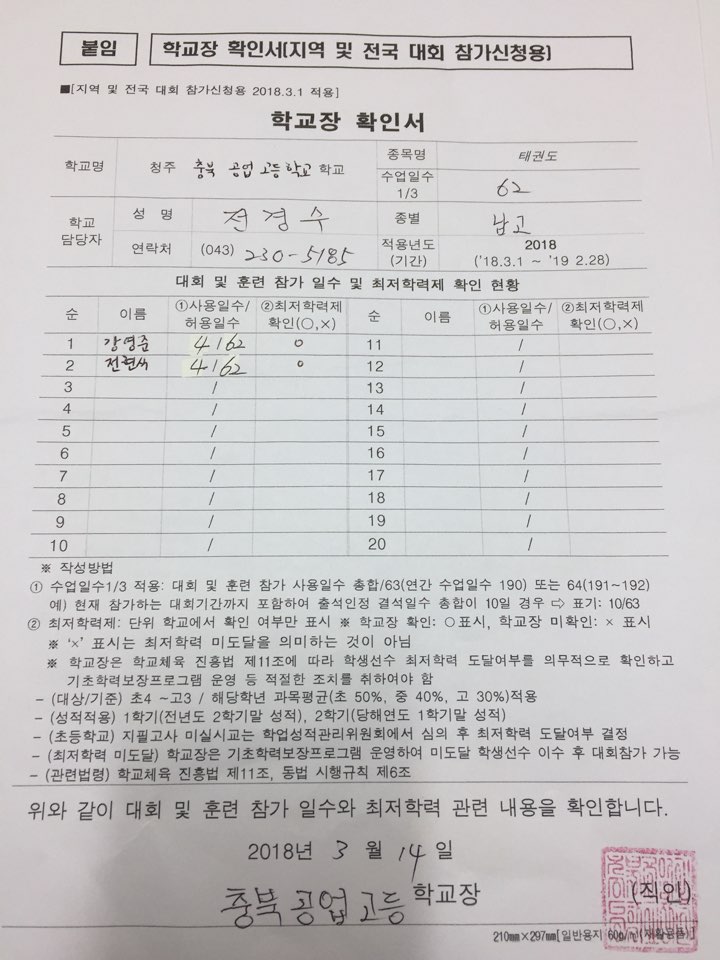 붙임 학교장 확인서(지역 및 전국 대회 참가신청용)
■[지역 및 전국 대회 참가신청용 2018.3.1 적용]
학교장 확인서
학교명 청주 충북 공업 고등학교 학교 종목명 태권도
수업일수 1/3 62
학교 담당자 성 명 전경수 종별 남고
연락처 (043) 230-5185 적용년도 (기간) 2018 ('18.3.1 ~ '19 2.28)
대회 및 훈련 참가 일수 및 최저학력제 확인 현황
순 이름 ①사용일수/허용일수 ②최저학력제 확인(○,×) 순 이름 ①사용일수/허용일수 ②최저학력제 확인(○,×)
1 강영준 4/62 ○ 11 /
2 전현 4/62 ○ 12 /
3 / 13 /
4 / 14 /
5 / 15 /
6 / 16 /
7 / 17 /
8 / 18 /
9 / 19 /
10 / 20 /
※ 작성방법
① 수업일수1/3 적용: 대회 및 훈련 참가 사용일수 총합/63(연간 수업일수 190) 또는 64(191~192)
예) 현재 참가하는 대회기간까지 포함하여 출석인정 결석일수 총합이 10일 경우 ⇨ 표기: 10/63
② 최저학력제: 단위 학교에서 확인 여부만 표시 ※ 학교장 확인: ○표시, 학교장 미확인: × 표시
※ '×' 표시는 최저학력 미도달을 의미하는 것이 아님
※ 학교장은 학교체육 진흥법 제11조에 따라 학생선수 최저학력 도달여부를 의무적으로 확인하고
기초학력보장프로그램 운영 등 적절한 조치를 취하여야 함
- (대상/기준) 초4 ~고3 / 해당학년 과목평균(초 50%, 중 40%, 고 30%)적용
- (성적적용) 1학기(전년도 2학기말 성적), 2학기(당해연도 1학기말 성적)
- (초등학교) 지필고사 미실시교는 학업성적관리위원회에서 심의 후 최저학력 도달여부 결정
- (최저학력 미도달) 학교장은 기초학력보장프로그램 운영하여 미도달 학생선수 이수 후 대회참가 가능
- (관련법령) 학교체육 진흥법 제11조, 동법 시행규칙 제6조
위와 같이 대회 및 훈련 참가 일수와 최저학력 관련 내용을 확인합니다.
2018년 3 월 14 일
충북 공업 고등 학교장 (직인)
210㎜×297㎜[일반용지 60g/㎡(재활용품)]